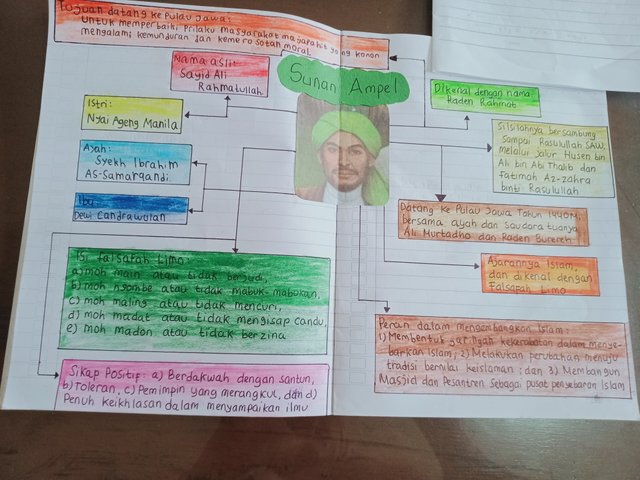 Tujuan datang ke Pulau Jawa:
Untuk memperbaiki prilaku masyarakat majapahit yang konon
mengalami kemunduran dan kemerosotan moral.
Sunan Ampel
Nama asli:
Sayid Ali
Rahmatullah
Istri:
Nyai Ageng Manila
Ayah:
Syekh Ibrahim
As-Samarqandi
Ibu
Dewi Candrawulan
Isi falsafah Limo:
a) moh main atau tidak berjudi,
b) moh ngombe atau tidak mabuk-mabukan,
c) moh maling atau tidak mencuri,
d) moh madat atau tidak mengisap candu,
e) moh madon atau tidak berzina
Sikap Positif: a) Berdakwah dengan santun,
b) Toleran, c) Pemimpin yang merangkul, dan d)
Penuh keikhlasan dalam menyampaikan ilmu
Dikenal dengan nama:
Raden Rahmat
Silsilahnya bersambung
Sampai Rasulullah SAW,
melalui jalur Husen bin
Ali bin Abi Thalib dan
Fatimah Az-zahra
binti Rasulullah
Datang ke Pulau Jawa Tahun 1440M,
bersama ayah dan Saudara tuanya
Ali Murtadho dan Raden Burereh
Ajarannya Islam,
dan dikenal dengan
Falsapah Limo
Peran dalam mengembangkan Islam:
1) Membentuk jaringan kekerabatan dalam menye-
barkan Islam; 2) Melakukan perubahan menuju
tradisi bernilai keislaman; dan 3) Membangun
Masjid dan Pesantren sebagai pusat penyebaran Islam